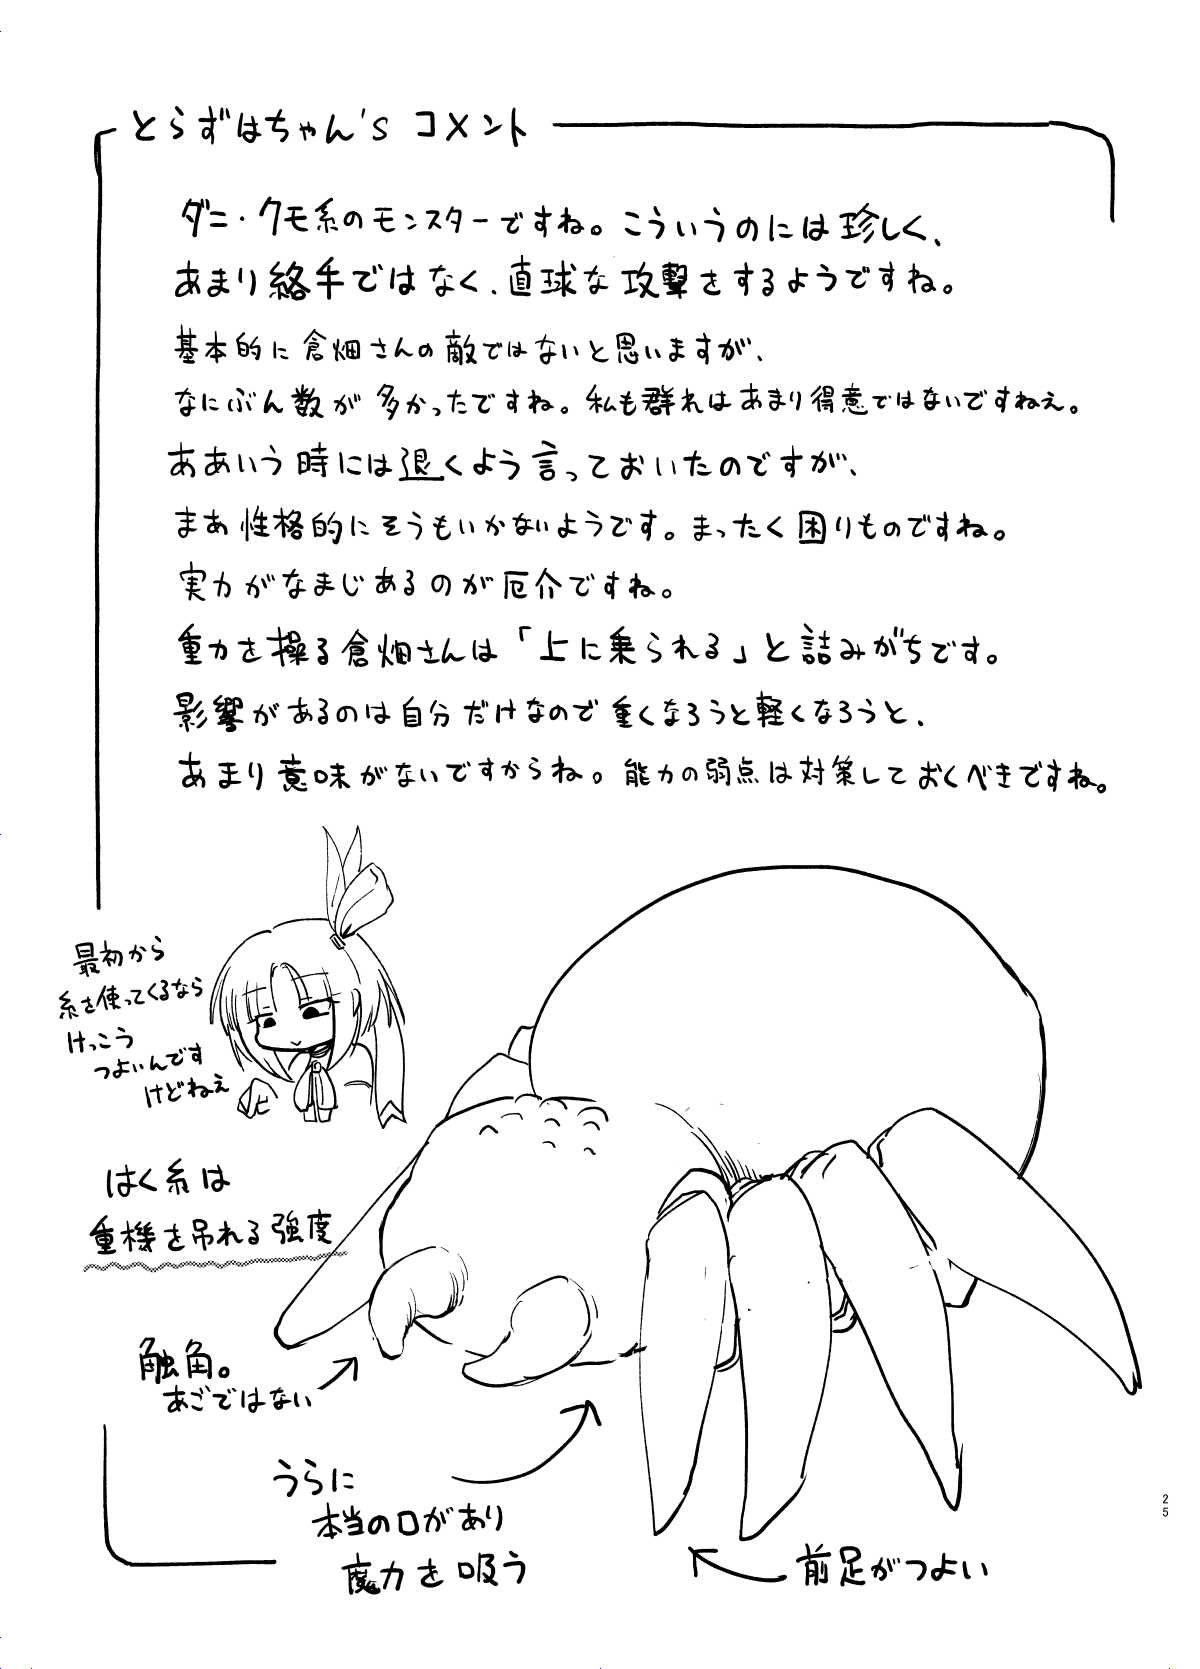 とらずはちゃん'S コメント
ダニ・クモ系のモンスターですね。こういうのには珍しく、
あまり絡手ではなく、直球な攻撃をするようですね。
基本的に倉畑さんの敵ではないと思いますが、
なにぶん数が多かったですね。私も群れはあまり得意ではないですねえ。
ああいう時には退くよう言っておいたのですが、
まあ性格的にそうもいかないようです。まったく困りものですね。
実力がなまじあるのが厄介ですね。
重力を操る倉畑さんは「上に乗られる」と詰みがちです。
影響があるのは自分だけなので重くなろうと軽くなろうと、
あまり意味がないですからね。能力の弱点は対策しておくべきですね。
最初から
糸を使ってくるなら
けっこう
つよいんです
けどねえ
はく糸は
重機を吊れる強度
触角。
あごではない
うらに
本当の口があり
魔力を吸う
前足がつよい
25